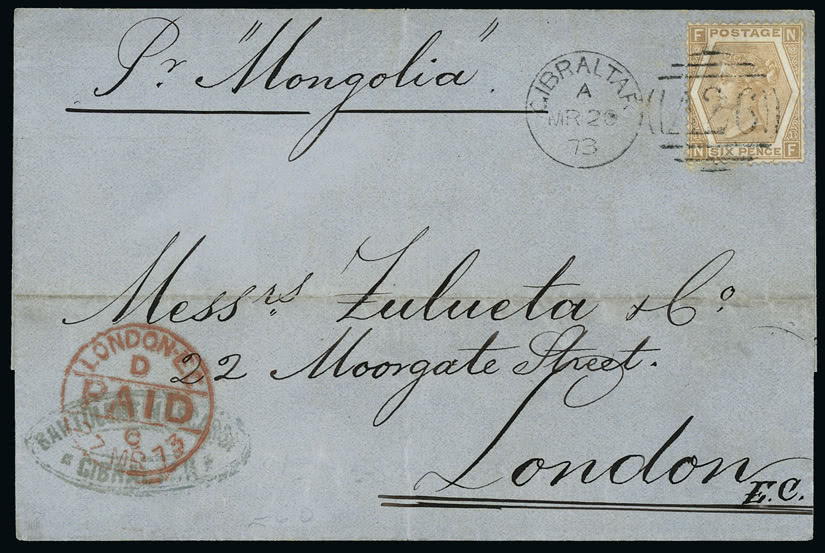 Pr "Mongolia".
GIBRALTAR
A
MR 20
73
A26
F POSTAGE N
N SIX PENCE F
Messrs Zulueta & Co
22 Moorgate Street.
London
E.C.
LONDON-EC
D
PAID
6
MR 73
GIBRALTAR